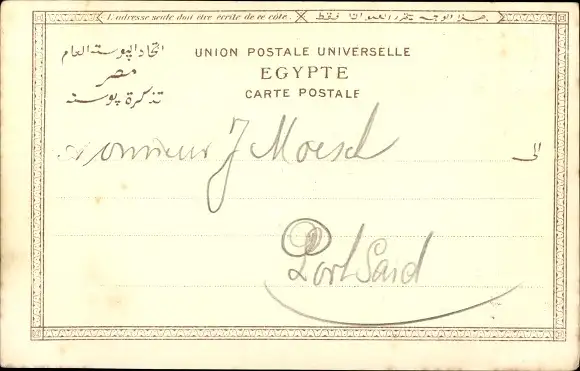 L'adresse seule doit être écrite de ce côté. هذا الوجه يتحرر العنوان فقط
اتحاد البوسته العام
مصر
تذكرة بوسته
UNION POSTALE UNIVERSELLE
EGYPTE
CARTE POSTALE
Monsieur J Moesch
الى
Port Said